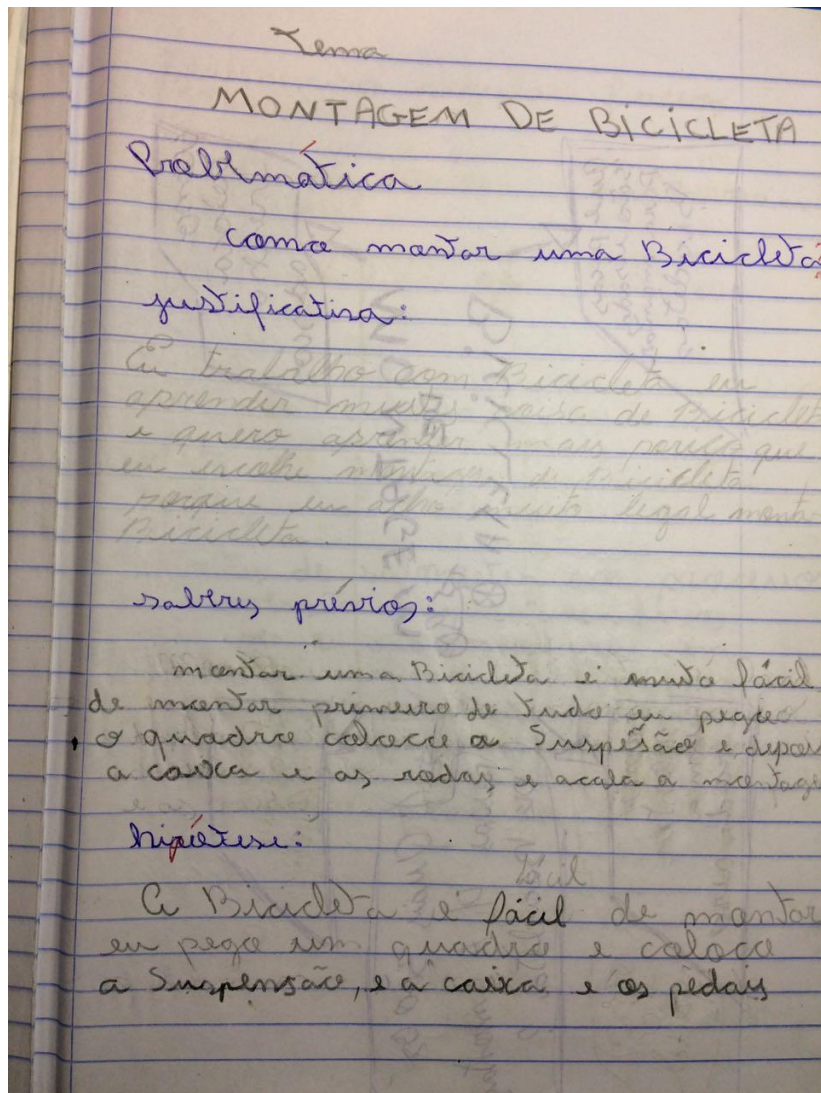 Tema
MONTAGEM DE BICICLETA
Problemática
como montar uma Bicicleta?
justificativa:
Eu trabalho com Bicicleta eu
aprender muitas coisa de Bicicleta
e quero aprender mais que
eu escolhe montagem de Bicicleta
porque eu acho muito legal monta
Bicicleta.
saberes prévios:
montar uma Bicicleta é muito fácil
de montar primeiro de tudo eu pegue
o quadro coloco a Suspesão e depois
a caixa e as rodas e acaba a montage
hipótese:
fácil
A Bicicleta é fácil de montar
eu pego um quadro e coloco
a Suspensão, e a caixa e os pedais